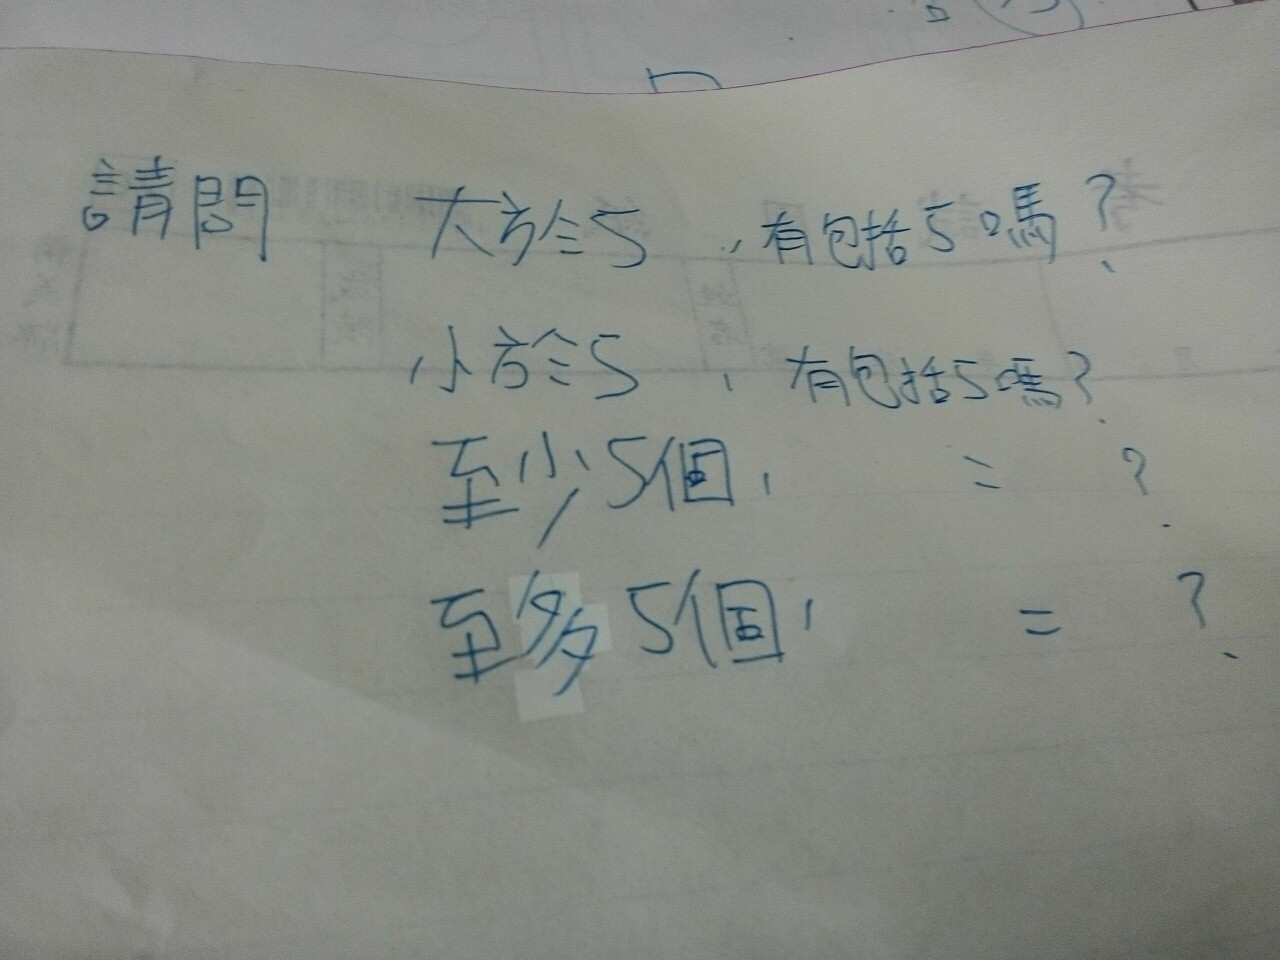 請問 大於5，有包括5嗎？
小於5，有包括5嗎？
至少5個， = ？
至多5個， = ？